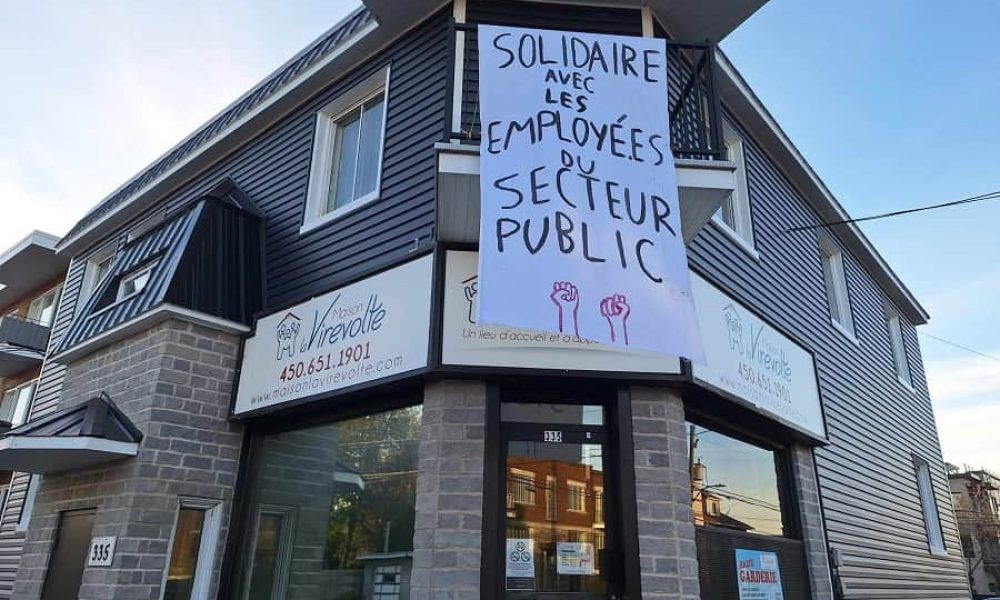 SOLIDAIRE
AVEC
LES
EMPLOYÉ.ES
DU
SECTEUR
PUBLIC
Maison
la Virevolte
450.651.1901
www.maisonlavirevolte.com
Un lieu d'accueil et d'app
Maison
la Virevolte
450.651.1901
www.maisonlavirevolte.com
335
335
HALTE
GARDERIE